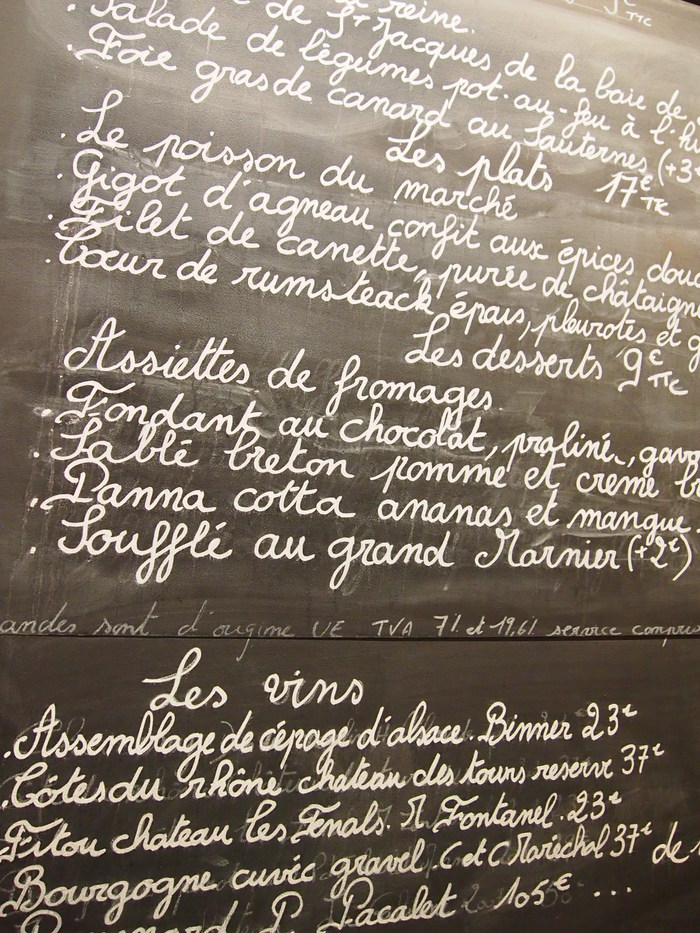 reine.
de St Jacques de la baie de
Salade de légumes pot-au-feu à l'hu
. Foie gras de canard au Sauternes (+3€
Les plats 17€ TTC
. Le poisson du marché
. Gigot d'agneau confit aux épices douc
. Filet de canette, purée de châtaigne
. Cœur de rumsteack épais, pleurotes et g
Les desserts 9€ TTC
Assiettes de fromages
. Fondant au chocolat, praliné, gavo
. Sablé breton pomme et creme br
. Panna cotta ananas et mangue.
. Soufflé au grand Marnier (+2€)
andes sont d'origine UE TVA 7% et 19,6% service compris
Les vins
. Assemblage de cépage d'alsace. Binner 23€
. Côtes du rhône chateau des tours reserve 37€
Fitou chateau les Fenals. R Fontanel. 23€
Bourgogne cuvée gravel. C et C Maréchal 37€ de
P. Pacalet 105€ ...